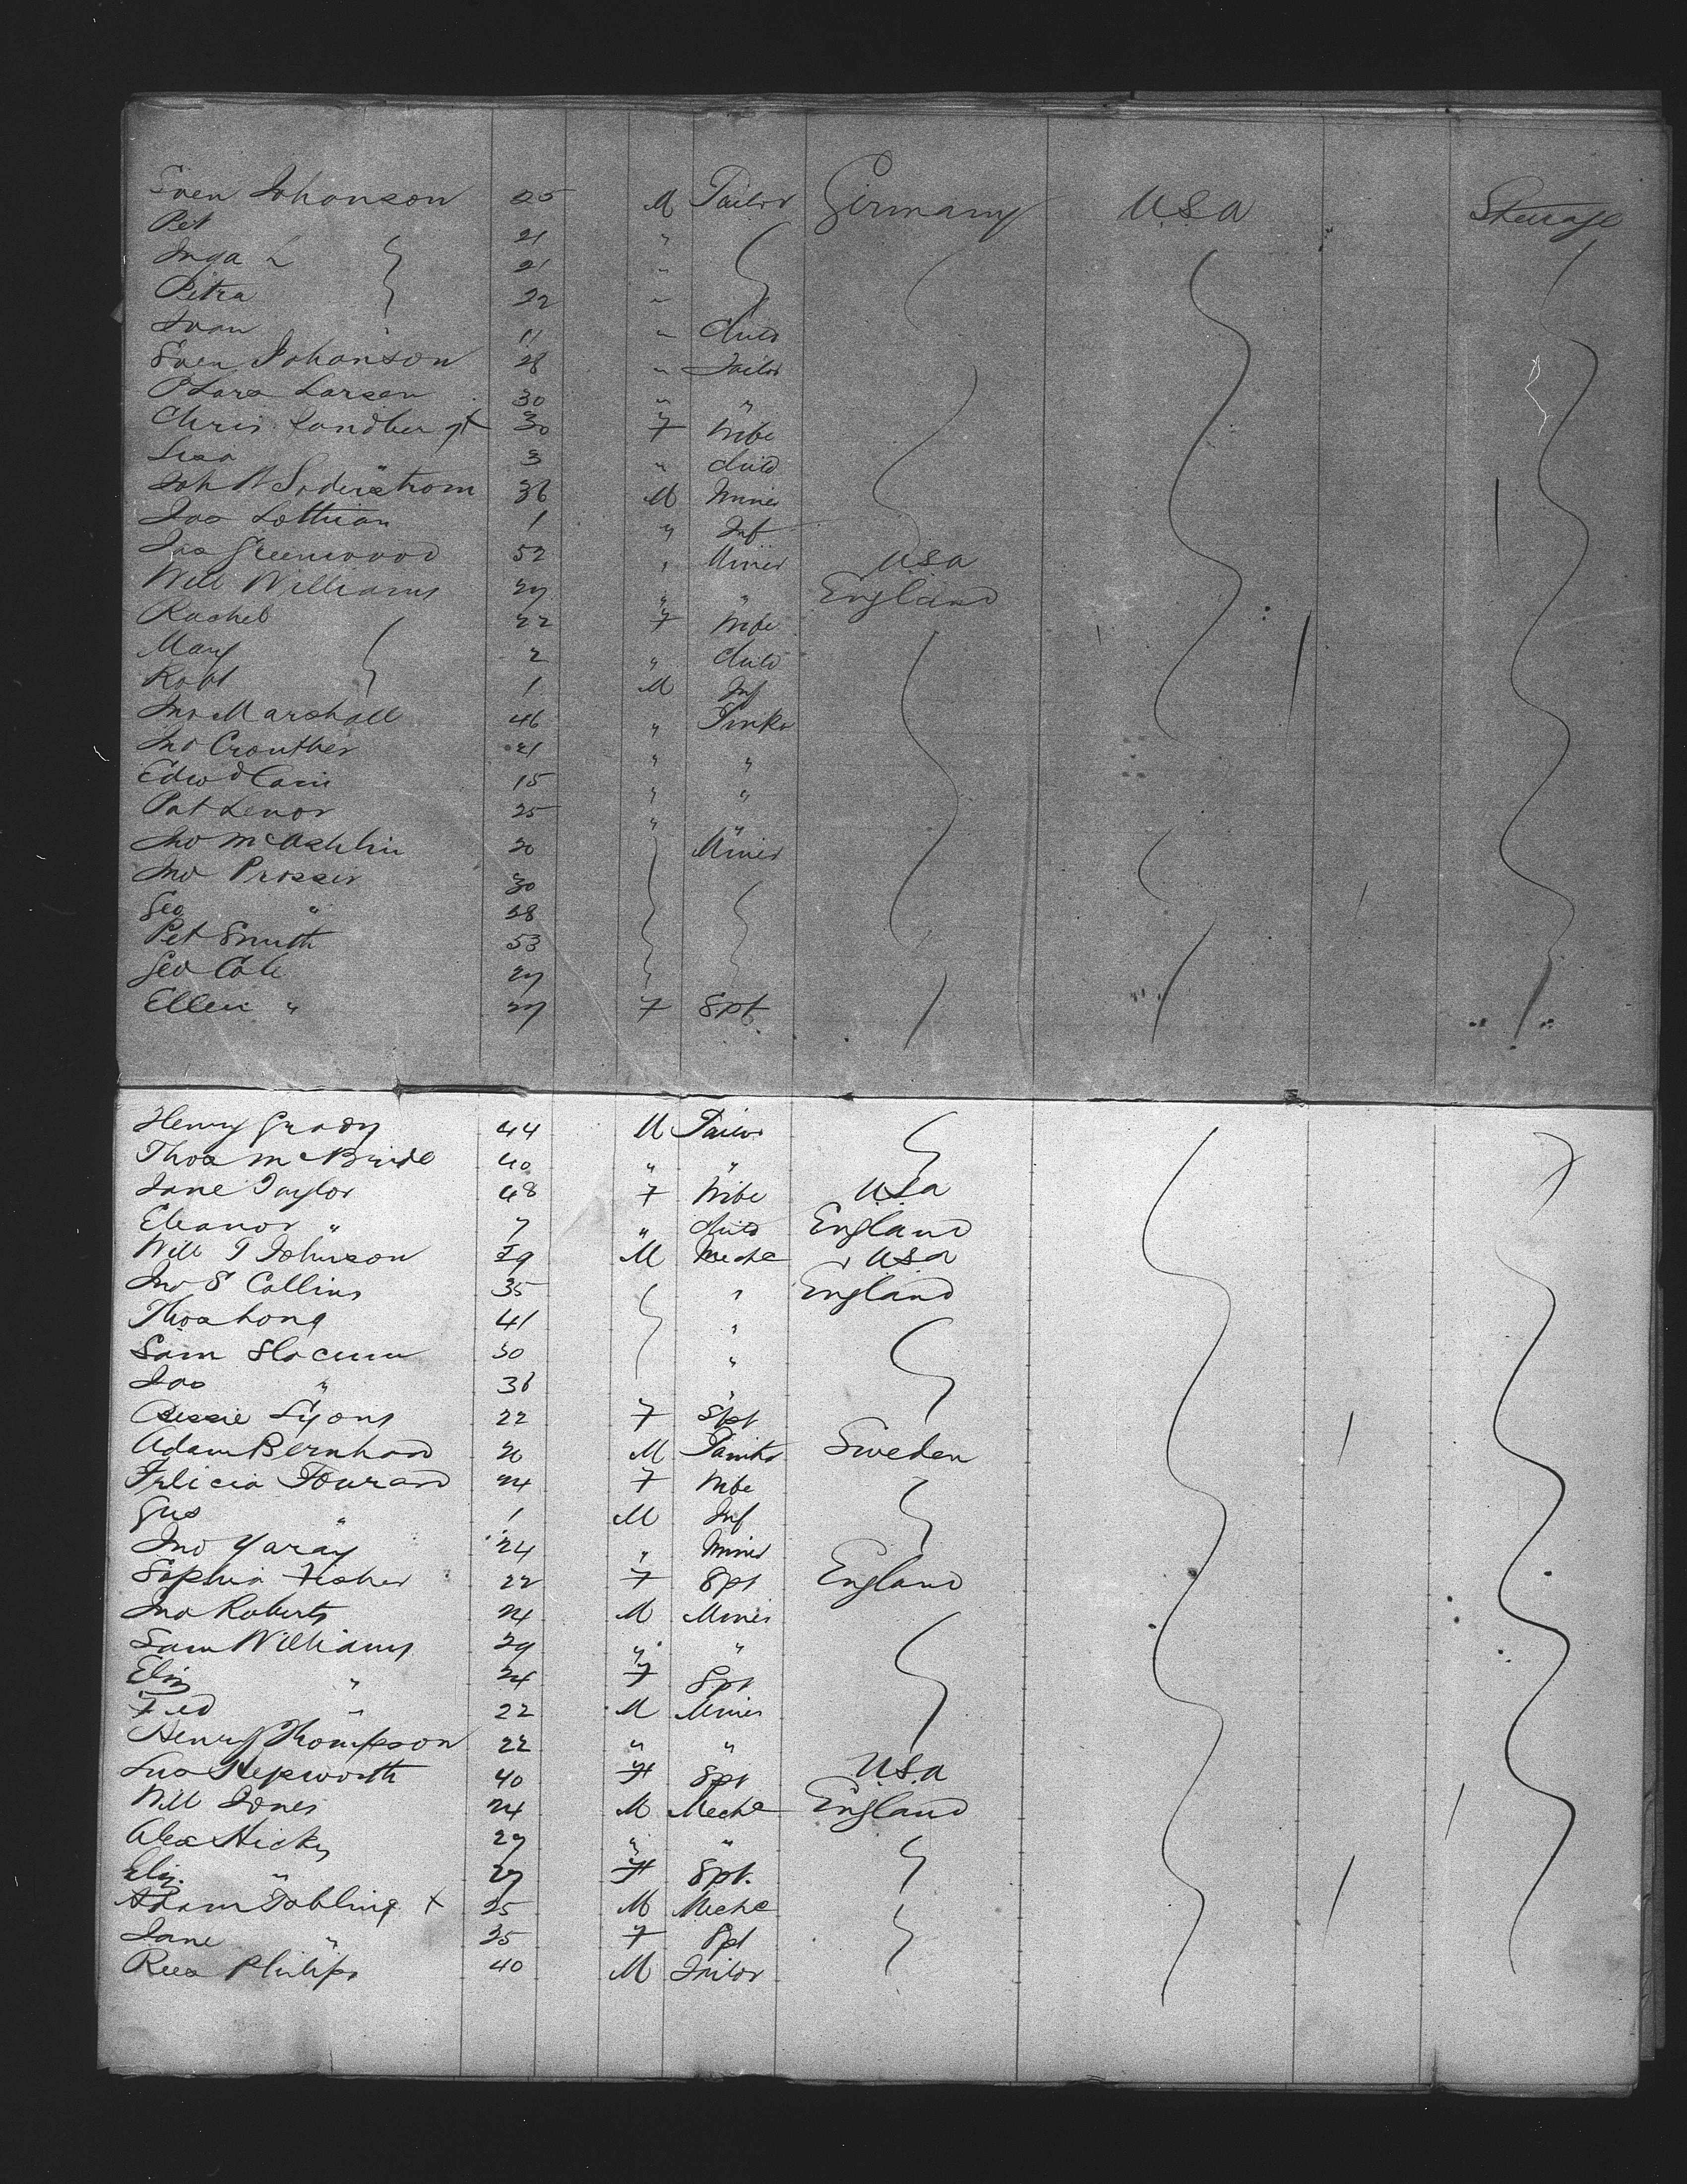 Sven Johanson 25 M Tailor Germany USA Steerage
Pet 21 "
Inga L 21 "
Petra 22 "
Ivan 11 " Child
Sven Johanson 28 " Tailor
Lars Larsen 30 " "
Chris Sandbergt 30 F Wife
Lisa 3 " Child
Joh Soderstrom 36 M Miner
Jas Lothian 1 " Inf
Jas Greenwood 52 " Miner USA
Will Williams 27 " " England
Rachel 22 F Wife
Mary 2 " Child
Robt 1 M Inf
Jno Marshall 46 "
Jno Crouther 21 " "
Edwd 15 " "
Pat Lenor 25 " "
Jno McAshlin 20 Miner
Jno Prosser 30
Geo " 28
Pet Smith 53
Geo Cole 27
Ellen " 27 F Spt
Henry Grady 44 M Tailor
Thos McBride 40 " "
Jane Taylor 48 F Wife USA
Eleanor " 7 " Child England
Will T Johnson 29 M Mechc USA
Jno S Collins 35 " England
Thos Long 41 "
Sam Slocum 30 "
Jas " 36 "
Bessie Lyons 22 F Spt
Adam Bernhard 20 M Sweden
Felicia 24 F Wife
Gus " 1 M Inf
Jno Yaray 24 " Miner
Sophia Fisher 22 F Spt England
Jno Roberts 24 M Miner
Sam Williams 29 " "
Eliz " 24 F Spt
Fred " 22 M Miner
Henry Thompson 22 " "
Hepworth 40 F Spt USA
Will Jones 24 M Mechc England
Alex Hicks 27 " "
Eliz. " 27 F Spt.
Adam Tobling + 25 M Mechc
Jane " 35 F Spt
Rees Philips 40 M Tailor